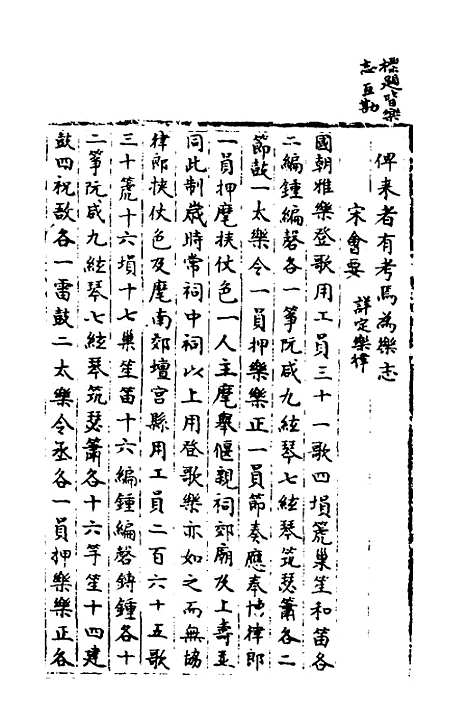 標題皆樂
志互勘
俾来者有考焉為樂志
宋會要
詳定樂律
國朝雅樂登歌用工員三十一歌四塤篪巢笙和笛各
二編鍾編磬各一箏阮咸九絃琴七絃琴筑瑟簫各二
節鼓一太樂令一員押樂樂正一員節奏應奉協律郎
一員押麾挾仗色一人主麾舉偃親祠郊廟及上壽並
同此制歲時常祀中祠以上用登歌樂亦如之而無協
律郎挾仗色及麾南郊壇宫縣用工員二百六十五歌
三十篪十六塤十七巢笙笛十六編鍾編磬鎛鍾各十
二箏阮咸九絃琴七絃琴筑瑟簫各十六竽笙十四建
鼓四柷敔各一雷鼓二太樂令丞各一員押樂樂正各